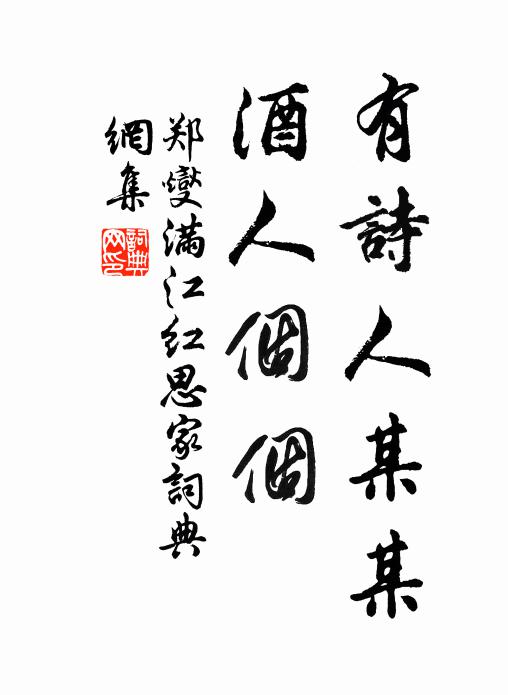 有詩人某某
酒人個個
郑燮满江红思家詞典
網集
詞典
网印